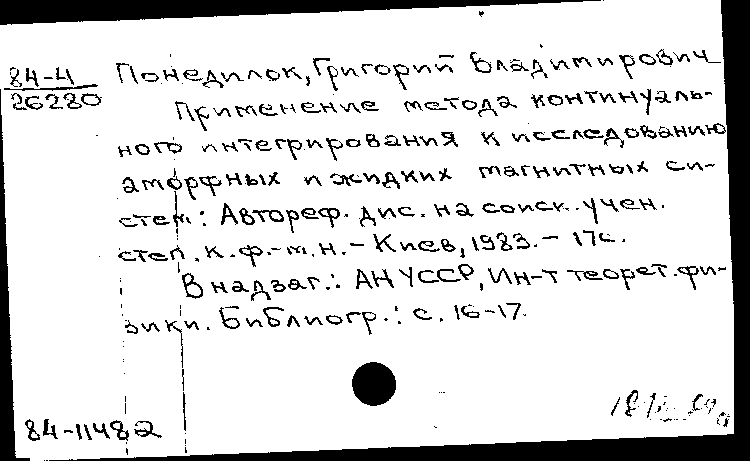 84-4
26280
Понедилок, Григорий Владимирович
Применение метода континуаль-
ного интегрирования к исследованию
аморфных и жидких магнитных си-
стем: Автореф. дис. на соиск. учен.
степ. к.ф.-м.н. - Киев, 1983. - 17с.
В надзаг.: АН УССР, Ин-т теорет. фи-
зики. Библиогр.: с. 16-17.
84-11482